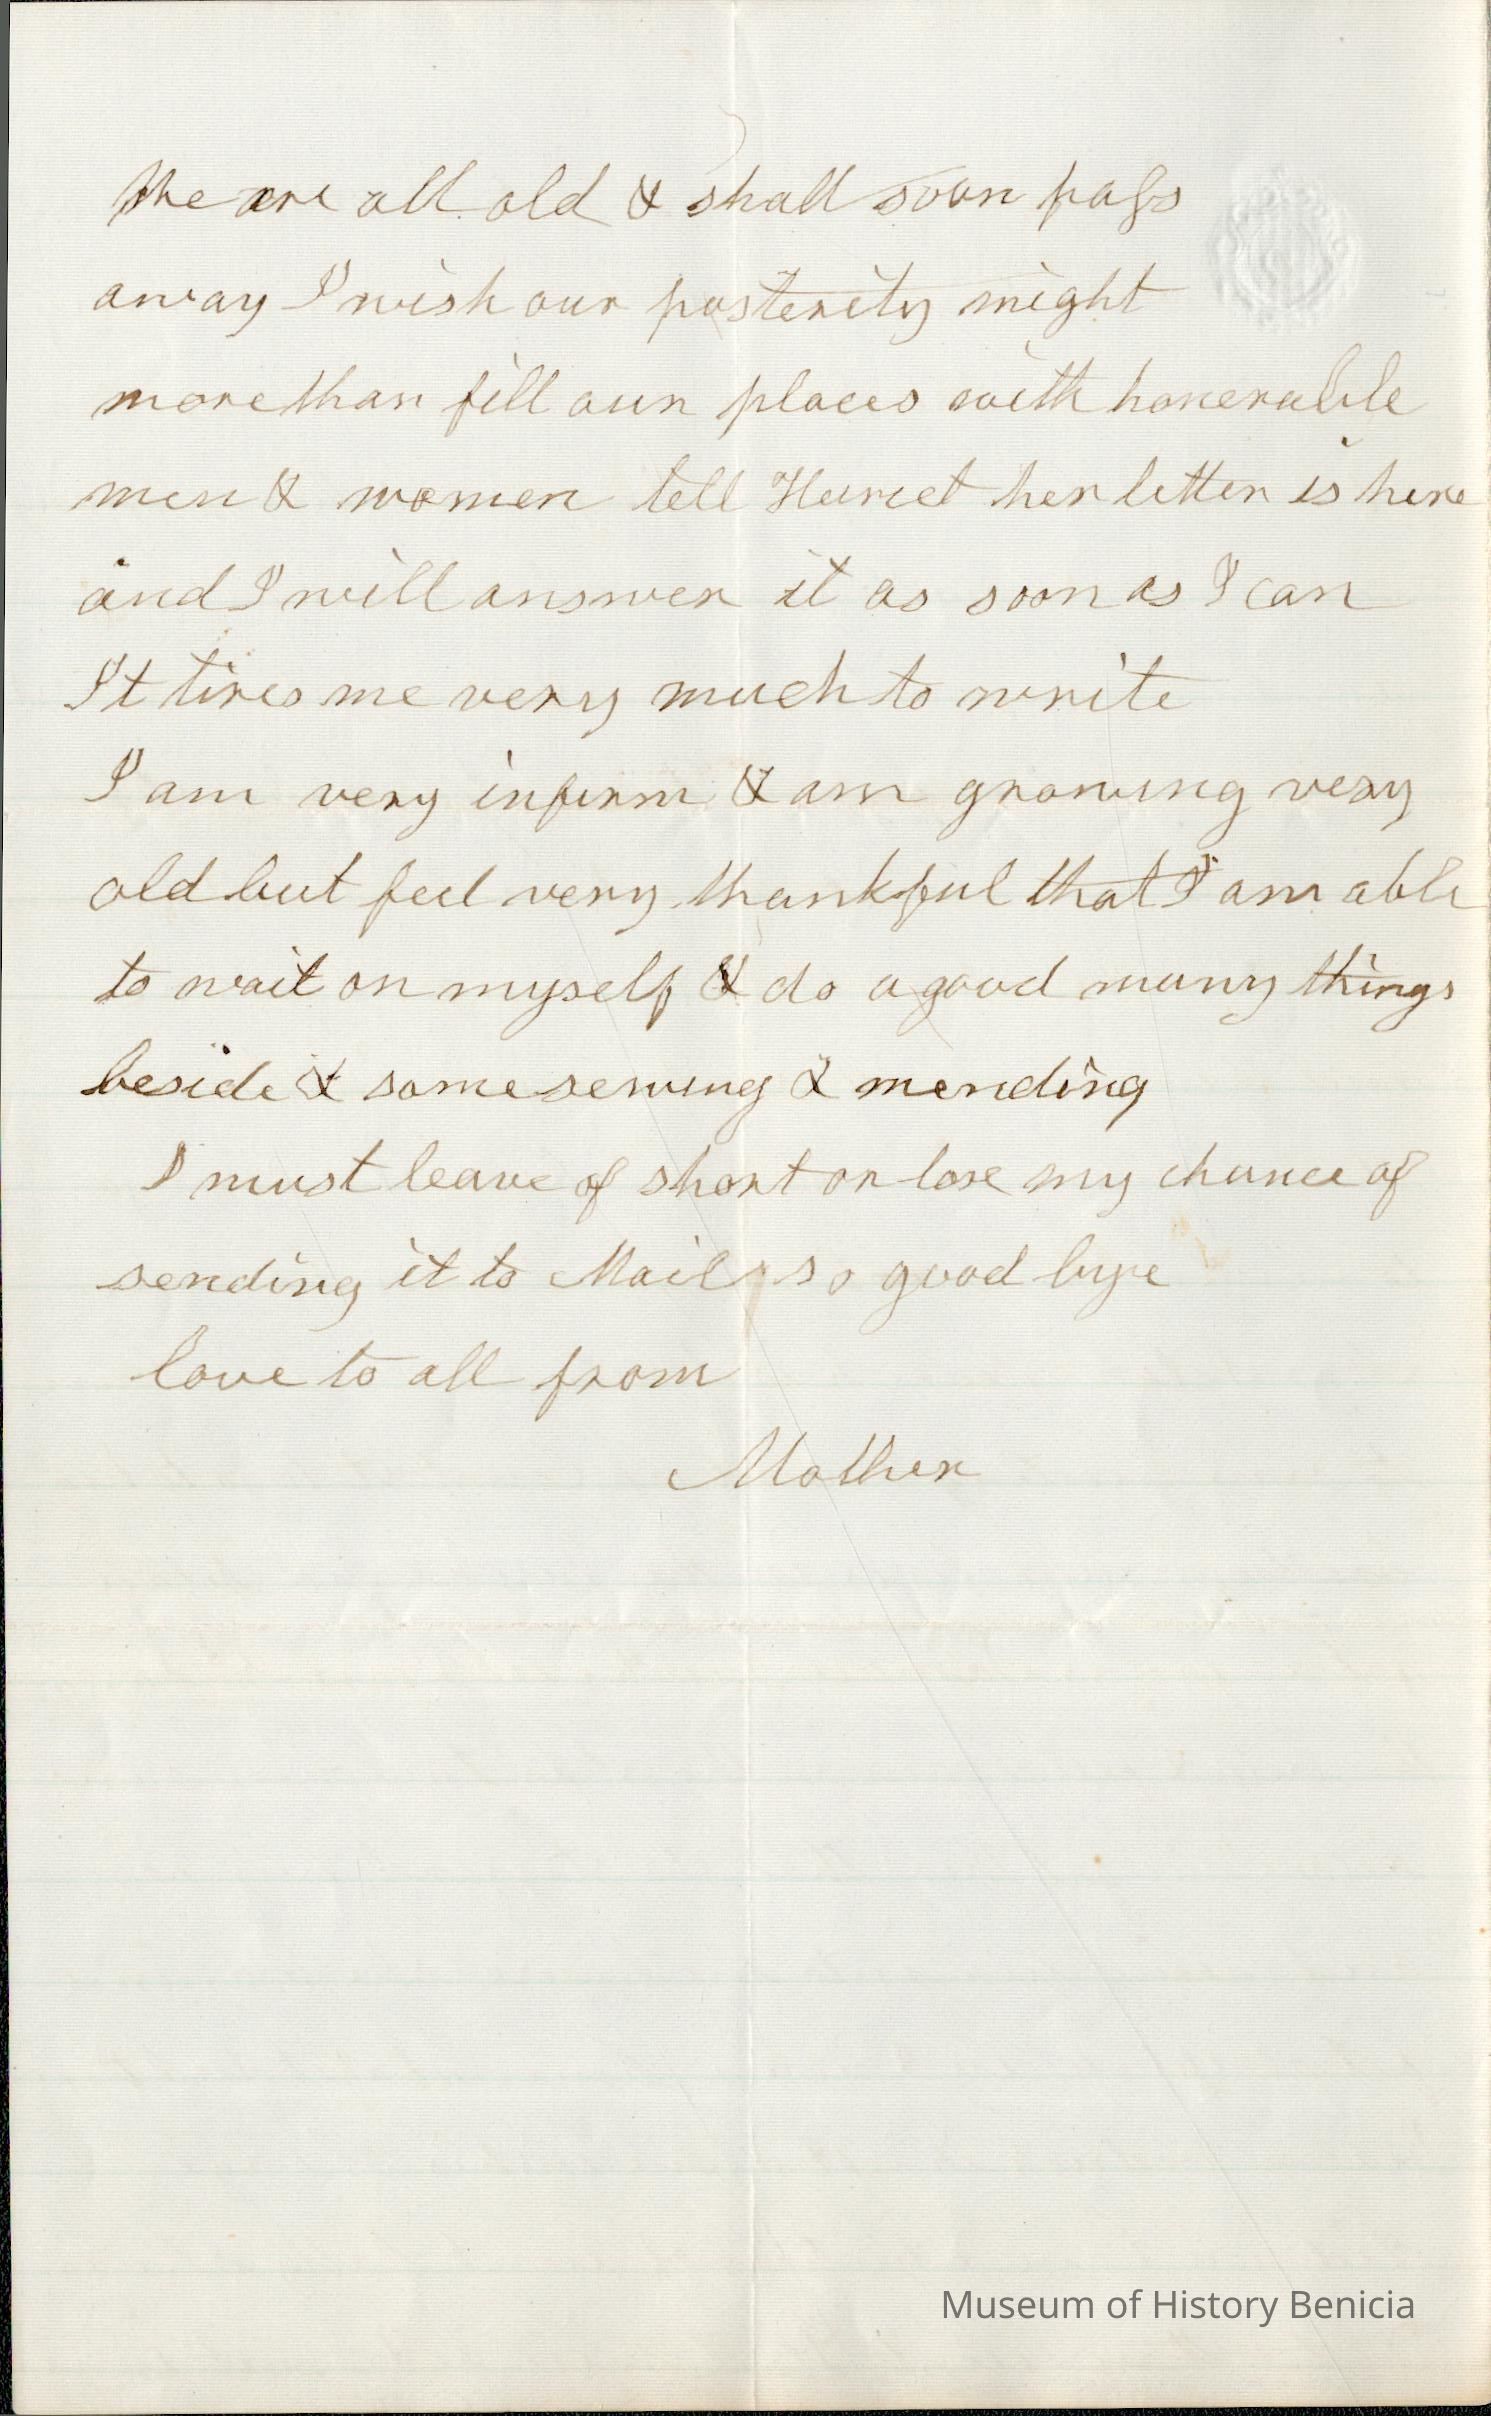 We are all old & shall soon pass
away I wish our posterity might
more than fill our places with honerable
men & women tell Hariet her letter is here
and I will answer it as soon as I can
It tires me very much to write
I am very infirm & am growing very
old but feel very thankful that I am able
to wait on myself & do a good many things
beside & some sewing & mending
I must leave of short or lose my chance of
sending it to Mail so good bye
love to all from
Mother
Museum of History Benicia